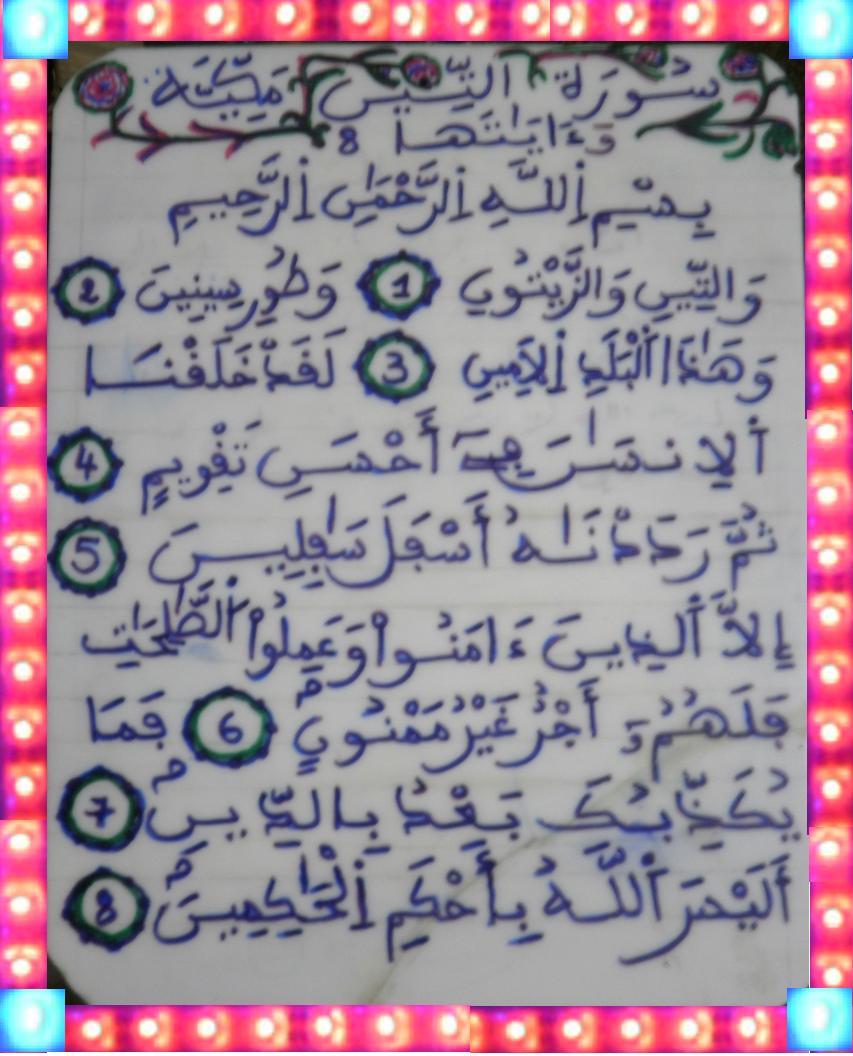 سُورَةُ التِّينِ مَكِّيَّة
وَءَايَٰتُهَا 8
بِسْمِ اِللَّهِ اِلرَّحْمَٰنِ اِلرَّحِيمِ
وَالتِّينِ وَالزَّيْتُونِ 1 وَطُورِ سِينِينَ 2
وَهَٰذَا اَلْبَلَدِ اِلَامِينِ 3 لَقَدْ خَلَقْنَا
اَلِانسَٰنَ فِے أَحْسَنِ تَقْوِيمٍ 4
ثُمَّ رَدَدْنَٰهُ أَسْفَلَ سَٰفِلِينَ 5
إِلَّا اَلذِينَ ءَامَنُواْ وَعَمِلُواْ اُلصَّٰلِحَٰتِ
فَلَهُمُۥٓ أَجْرٌ غَيْرُ مَمْنُونٍ 6 فَمَا
يُكَذِّبُكَ بَعْدُ بِالدِّينِ 7
أَلَيْسَ اَللَّهُ بِأَحْكَمِ اِلْحَٰكِمِينَ 8